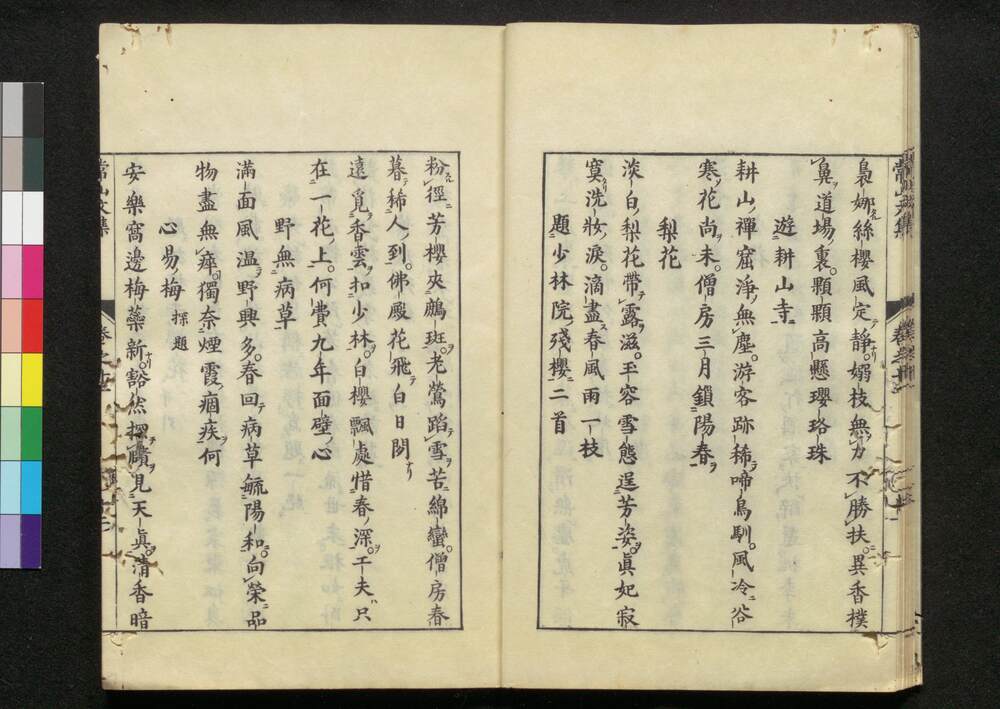 裊娜絲櫻風定靜嫋枝無力不勝扶異香撲
鼻道場裏顆顆高懸瓔珞珠
遊耕山寺
耕山禪窟淨無塵游客跡稀啼鳥馴風冷谷
寒花尚未僧房三月鎖陽春
梨花
淡白梨花帶露滋玉容雪態逞芳姿真妃寂
寞洗妝淚滴盡春風雨一枝
題少林院殘櫻二首
粉徑芳櫻夾鷓斑老鶯蹈雪苦綿蠻僧房春
暮稀人到佛殿花飛白日閑
遠覓香雲扣少林白櫻飄處惜春深工夫只
在一花上何費九年面壁心
野無病草
滿面風温野興多春回病草毓陽和向榮品
物盡無瘁獨奈煙霞痼疾何
心易梅 探題
安樂窩邊梅蘂新豁然探賾見天真清香暗
常山文集